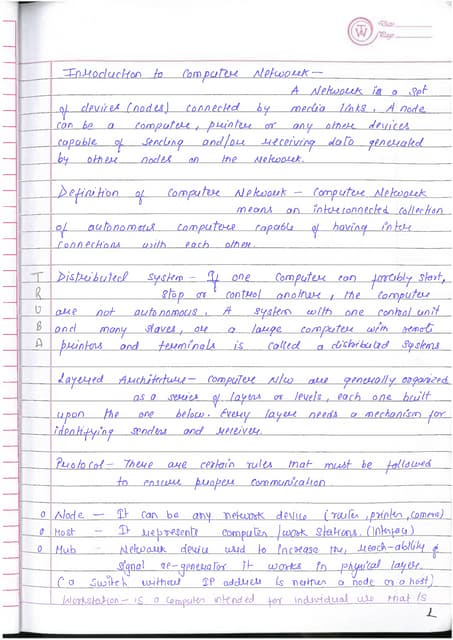 Date
Page
Introduction to Computer Network -
A Network is a set
of devices (nodes) connected by media links. A node
can be a computer, printer or any other devices
capable of sending and/or receiving data generated
by other nodes on the network.
Definition of Computer Network - Computer Network
means an interconnected collection
of autonomous computer capable of having inter
connections with each other.
Distributed System - If one Computer can forcibly start,
stop or control another, the computer
are not autonomous. A system with one control unit
and many slaves, or a large computer with remote
printers and terminals is called a distributed systems
T
R
U
B
A
Layered Architecture - Computer N/w are generally organized
as a series of layers or levels, each one built
upon the one below. Every layer needs a mechanism for
identifying senders and receiver.
Protocol - There are certain rules that must be followed
to ensure proper communication
o Node - It can be any network device (router, printer, camera)
o Host - It represents computer /work stations. (Interface)
o Hub - Network device used to increase the, reach-ability &
signal re-generator it works in physical layer.
(a Switch without IP address is neither a node or a host)
Workstation - is a computer intended for individual use that is